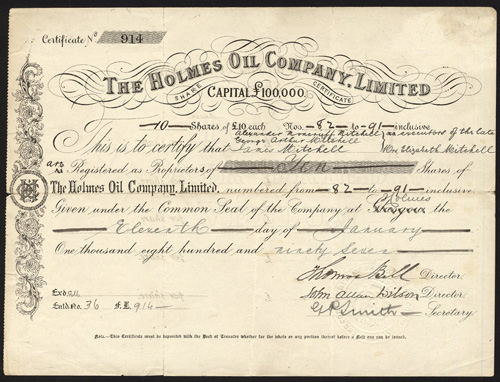 Certificate No 914
THE HOLMES OIL COMPANY, LIMITED
SHARE CERTIFICATE
CAPITAL £100,000.
10 Shares of £10 each Nos 82 to 91 inclusive
Alexander Moncrieff Mitchell, as executors of the late
George Arthur Mitchell
This is to certify that James Mitchell Mrs Elizabeth Mitchell
are
is Registered as Proprietors of Ten Shares of
The Holmes Oil Company, Limited, numbered from 82 to 91 inclusive
Given under the Common Seal of the Company at Holmes the
Eleventh day of January
One thousand eight hundred and ninety Seven
Thomas Bell Director.
John Allan Wilson Director
Smith Secretary.
Exd.
Entd. No. 36 F.L 914
Note.—This Certificate must be deposited with the Deed of Transfer whether for the whole or any portion thereof before a New one can be issued.